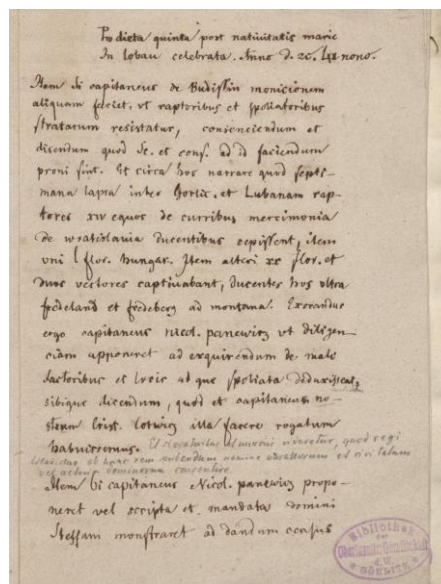 Pro dieta quinta post nativitatis marie
In lobau celebrata. Anno d. 
Item si capitaneus de Budissin monicionem
aliquam fecerit, vt raptoribus et spoliatoribus
stratarum resistatur, conveniendum et
dicendum quod Se. et cons. ad id faciendum
proni sint. Et circa hos narrare quod septi-
mana lapsa inter Gorlic. et Lubanam rap-
tores xiv equos de curribus mercimonia
de wratislavia ducentibus cepissent, item
vni l flor. hungar. Item alteri xx flor. et
duos vectores captivabant, ducentes hos vltra
fredeland et fredeberg ad montana. Exorandus
ergo capitaneus nicol. panewicz vt diligen-
ciam apponeret ad exquirendum de male
factoribus et locis ad que spoliata deduxissent,
sibique dicendum, quod et capitaneum no-
strum Crist. Cotwicz illa facere rogatum
habuissemus.
vel alicui dominorum consentire.
Item si capitaneus Nicol. panewicz propo-
neret vel scripta et mandata domini
Steffani monstraret ad dandum census
Bibliothek
der
Oberlausitz. Gesellschaft
d. W.
GÖRLITZ